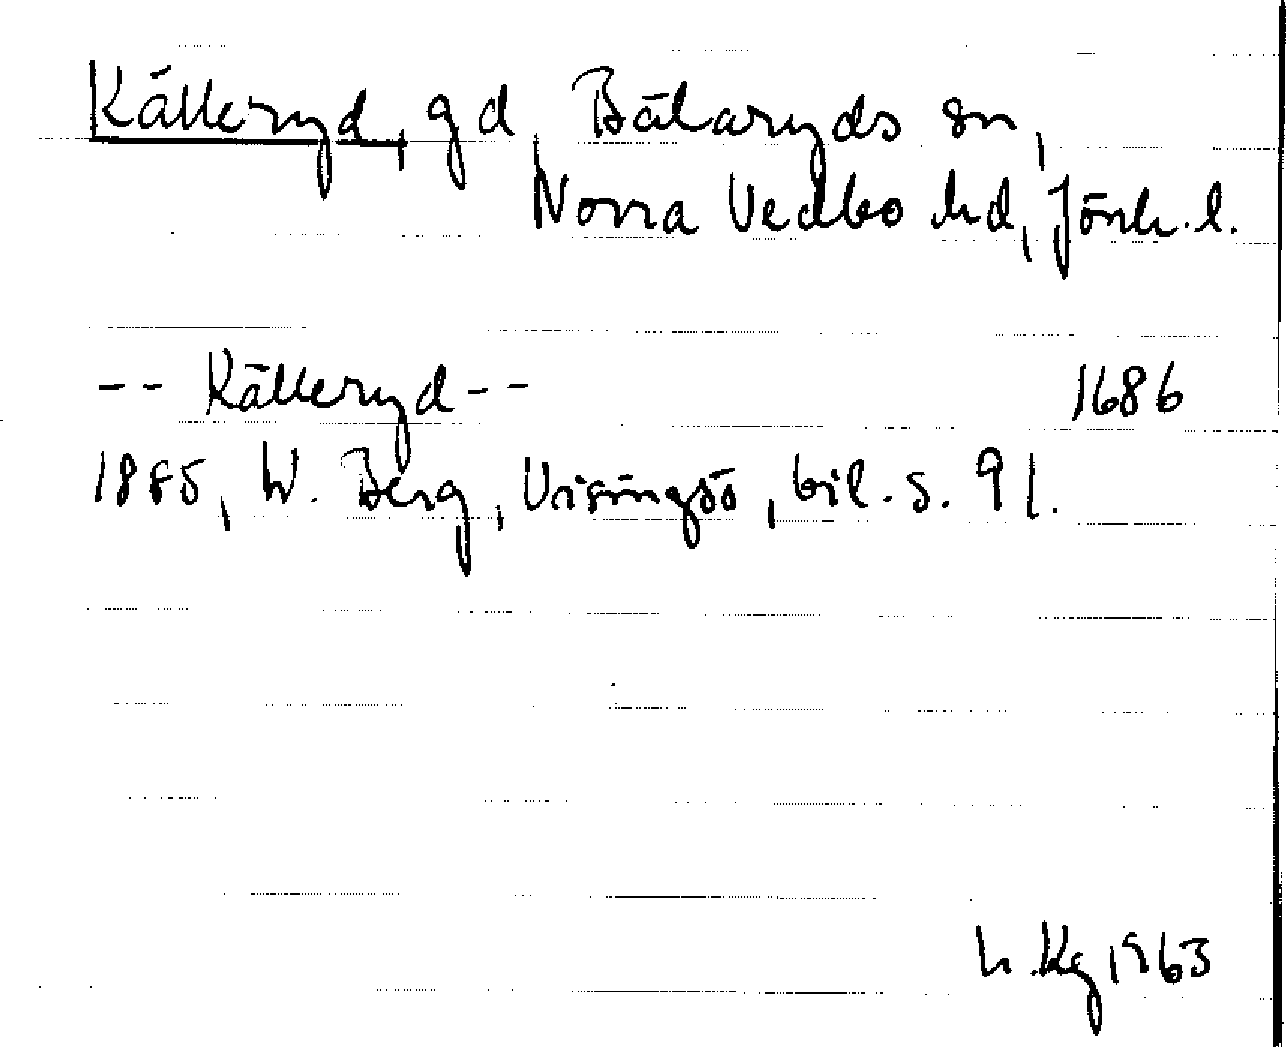 Källeryd, gd, Bälaryds sn,
Norra Vedbo hd, Jönk. l.
-- Källeryd -- 1686
1885, W. Berg, Visingsö, bil. s. 91.
h. Kg 1963